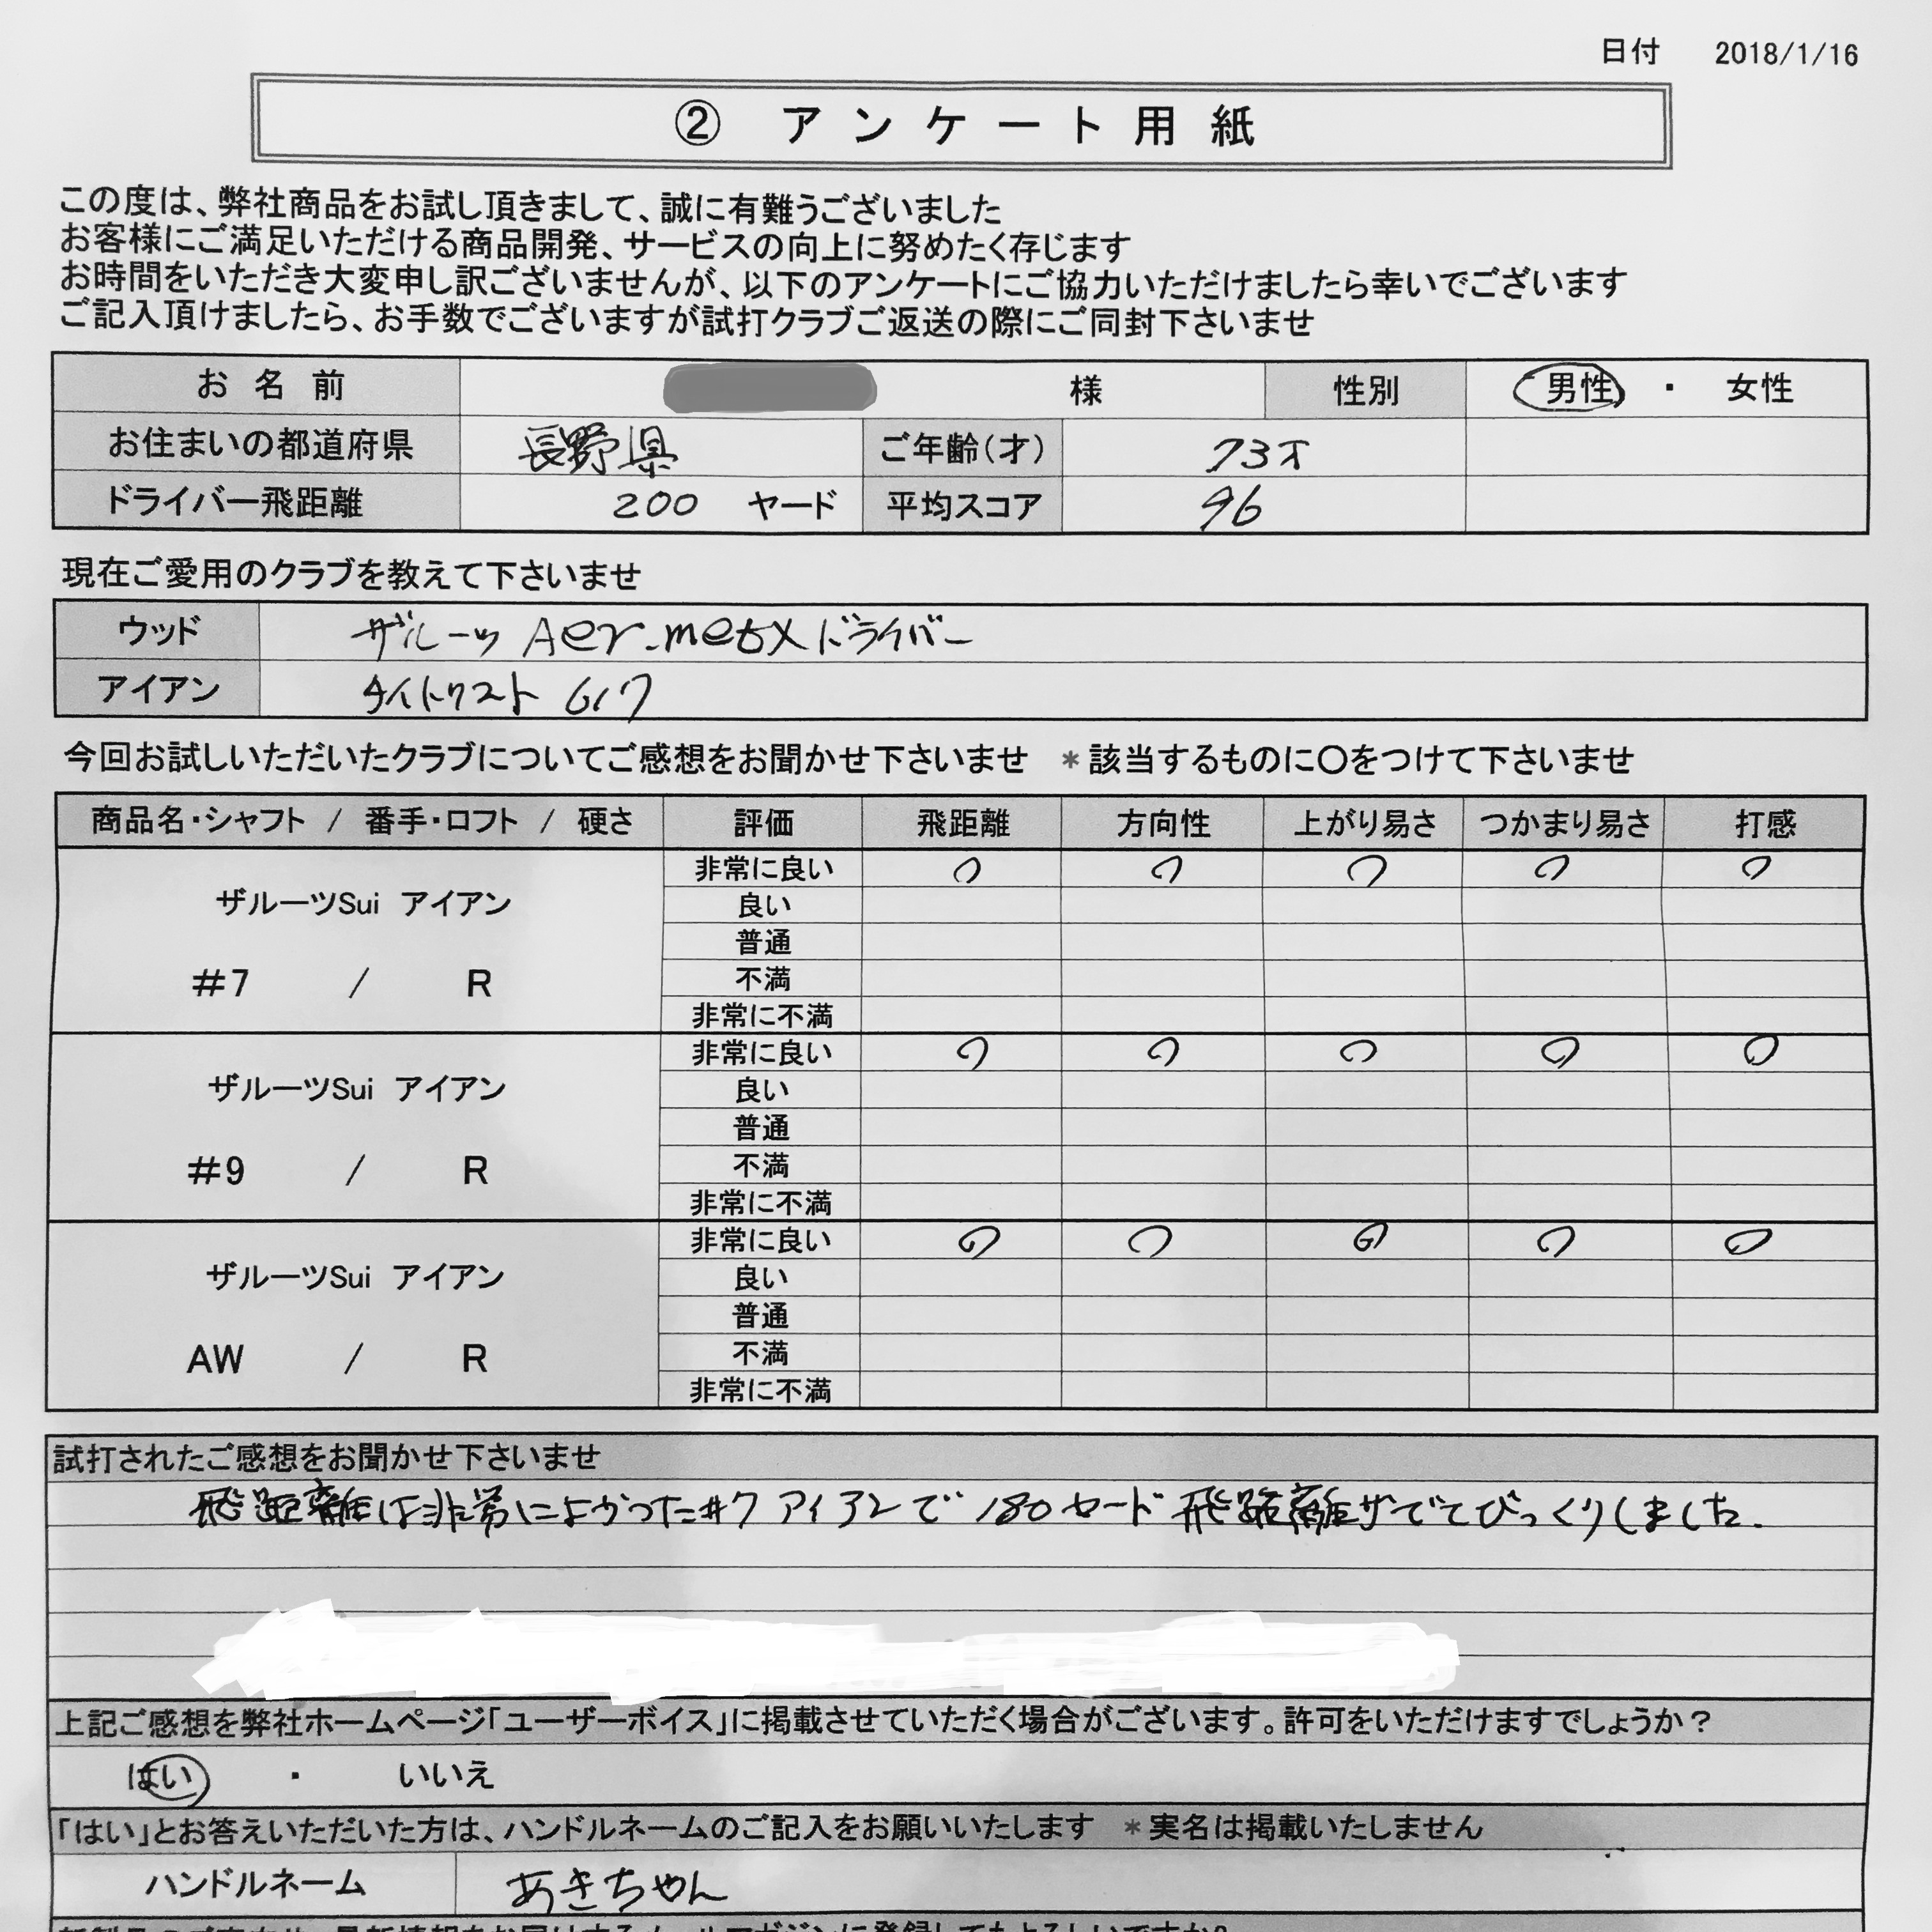 日付 2018/1/16
② アンケート用紙
この度は、弊社商品をお試し頂きまして、誠に有難うございました
お客様にご満足いただける商品開発、サービスの向上に努めたく存じます
お時間をいただき大変申し訳ございませんが、以下のアンケートにご協力いただけましたら幸いでございます
ご記入頂けましたら、お手数でございますが試打クラブご返送の際にご同封下さいませ
お名前 様 性別 男性 ・ 女性
お住まいの都道府県 長野県 ご年齢(才) 73才
ドライバー飛距離 200 ヤード 平均スコア 96
現在ご愛用のクラブを教えて下さいませ
ウッド ザルーツ Aer.metXドライバー
アイアン タイトリスト 617
今回お試しいただいたクラブについてご感想をお聞かせ下さいませ *該当するものに〇をつけて下さいませ
商品名・シャフト / 番手・ロフト / 硬さ 評価 飛距離 方向性 上がり易さ つかまり易さ 打感
ザルーツSui アイアン
#7 / R
非常に良い 〇 〇 〇 〇 〇
良い
普通
不満
非常に不満
ザルーツSui アイアン
#9 / R
非常に良い 〇 〇 〇 〇 〇
良い
普通
不満
非常に不満
ザルーツSui アイアン
AW / R
非常に良い 〇 〇 〇 〇 〇
良い
普通
不満
非常に不満
試打されたご感想をお聞かせ下さいませ
飛距離は非常によかった#7アイアンで180ヤード飛距離がでてびっくりしました.
上記ご感想を弊社ホームページ「ユーザーボイス」に掲載させていただく場合がございます。許可をいただけますでしょうか?
はい ・ いいえ
「はい」とお答えいただいた方は、ハンドルネームのご記入をお願いいたします *実名は掲載いたしません
ハンドルネーム あきちゃん